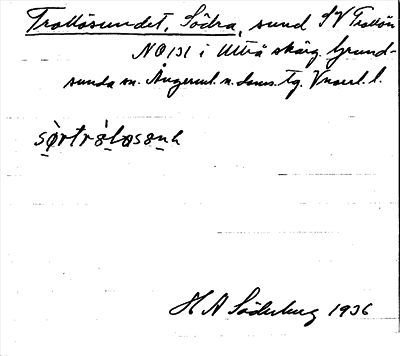 Trollösundet, Södra, sund SV Trollön
NO 131 i Utvå skärg. Grund-
sunda sn. Ångerml. n. doms. tg. Vnorrl. l.
H A Söderberg 1936